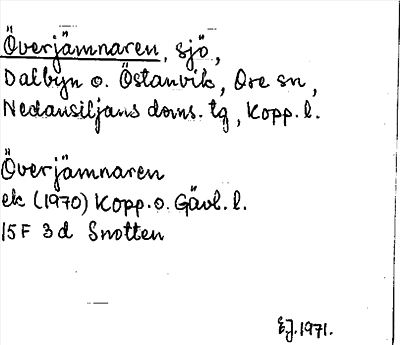 Överjämnaren, sjö,
Dalbyn o. Östanvik, Ore sn,
Nedansiljans doms. tg, Kopp. l.
Överjämnaren
ek (1970) Kopp. o. Gävl. l.
15F 3d Snotten
EJ. 1971.